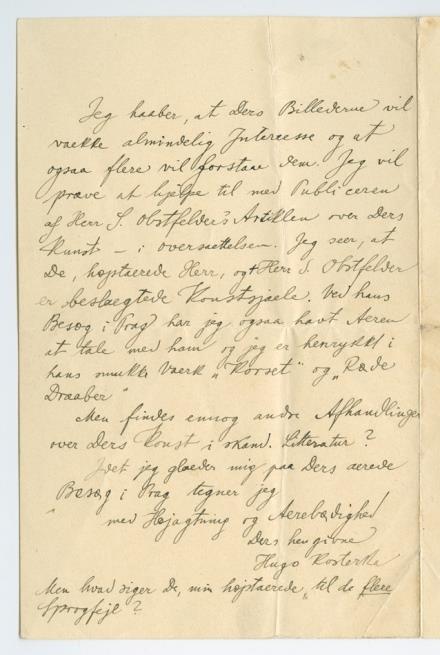 Jeg haaber, at Ders Billederne vil
vaekke almindelig Interesse og at
ogsaa flere vil forstaae dem. Jeg vil
prøve at hjelpe til med Publiceren
af Herr S. Obstfelder's Artiklen over Ders
Kunst – i oversaettelsen. Jeg seer, at
De, højstaerede Herr, og Herr S. Obstfelder
er beslaegtede Konstsjaele. Ved hans
Besøg i Prag har jeg ogsaa havt Aeren
at tale med ham og jeg er henrykkt i
hans smukke Vaerk „Korset" og „Røde
Draaber"
Men findes ennog andre Afhandlinger
over Ders Konst i skand. Litteratur?
Idet jeg glaeder mig paa Ders aerede
Besøg i Prag tegner jeg
med Højagtning og Aerebødighed
Ders hengivne
Hugo Kosterka
Men hvad siger De, min højstaerede, til de flere
Sprogfejl?